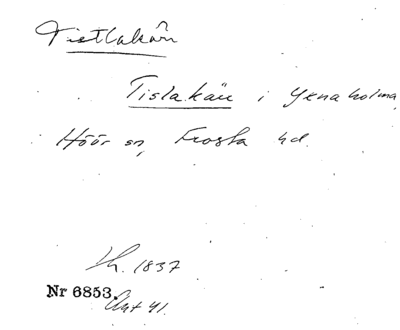 Tistlakärr
Tislakärr i Yxnaholma
Höör sn, Frosta hd.
Lh. 1837
Nr 6853.
Akt 41.